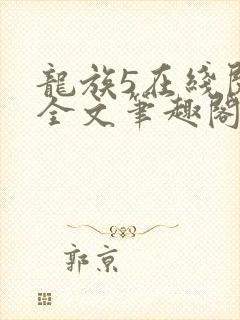 龍族5在綫
全文筆趣閣
郭京